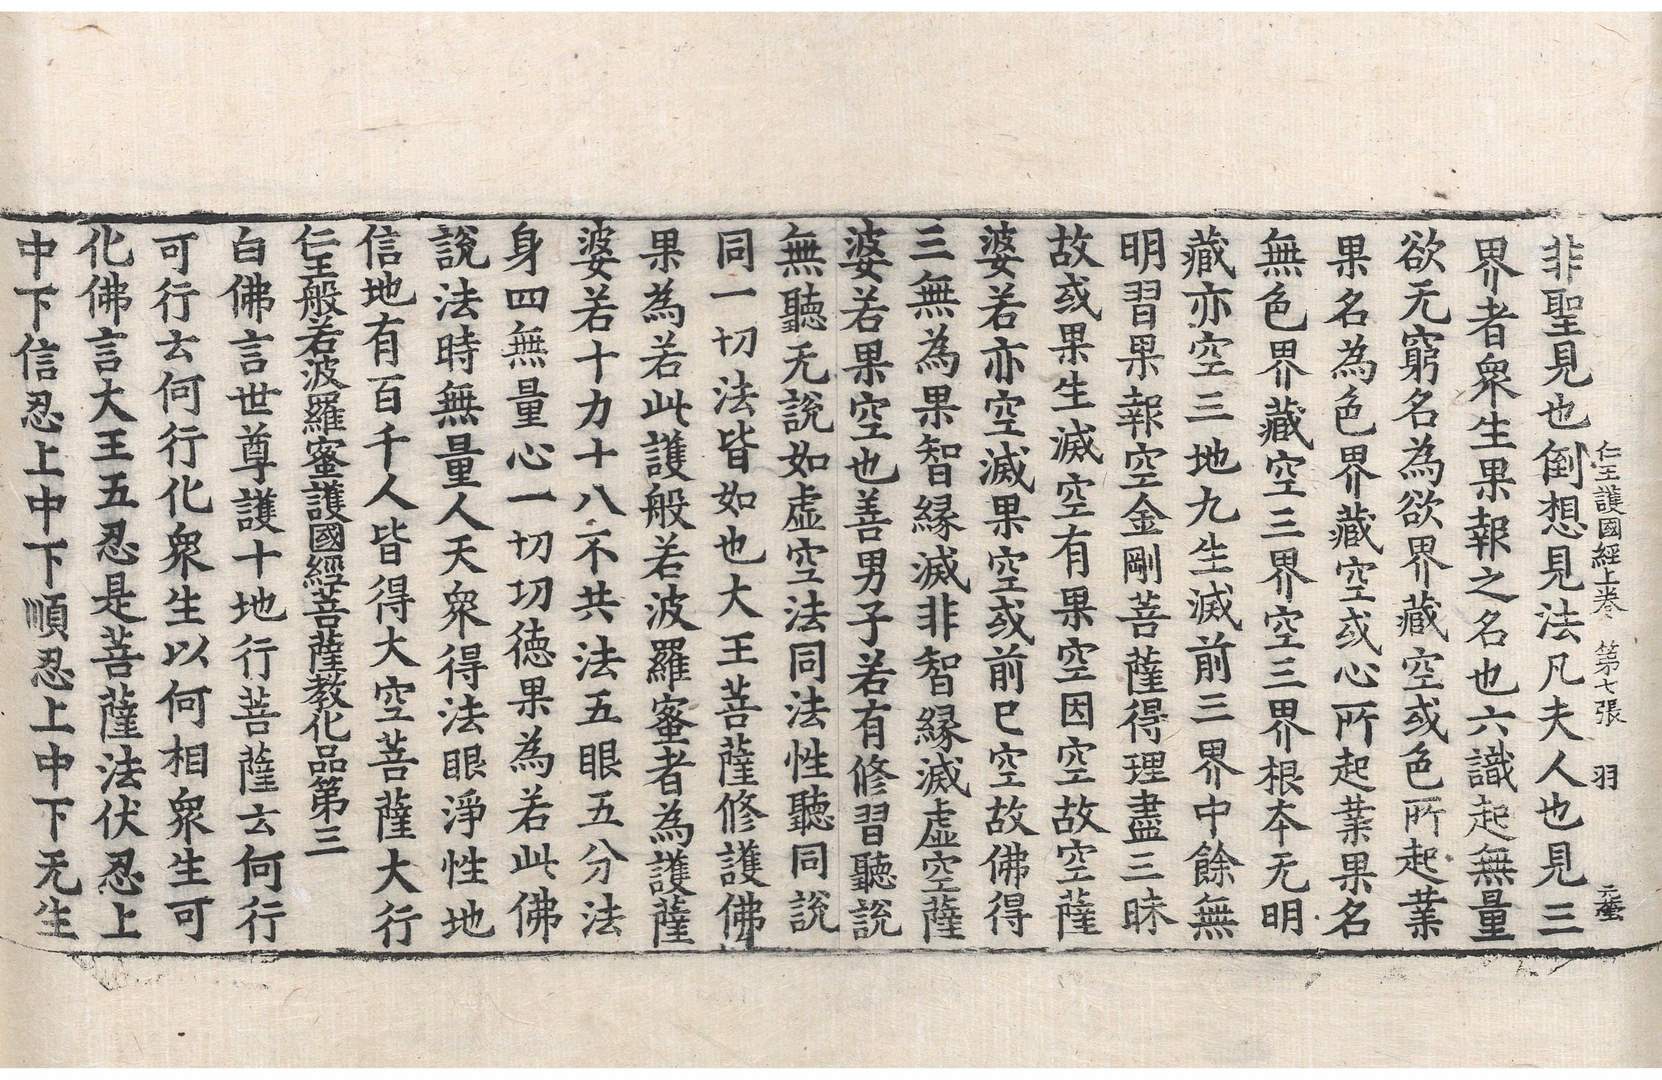 仁王護國經上卷 第七張 羽
非聖見也倒想見法凡夫人也見三
界者衆生果報之名也六識起無量
欲无窮名為欲界藏空或色所起業
果名為色界藏空或心所起業果名
無色界藏空三界空三界根夲无明
藏亦空三地九生滅前三界中餘無
明習果報空金剛菩薩得理盡三昧
故或果生滅空有果空因空故空薩
婆若亦空滅果空或前已空故佛得
三無為果智緣滅非智緣滅虛空薩
婆若果空也善男子若有修習聽說
無聽无說如虛空法同法性聽同說
同一切法皆如也大王菩薩修護佛
果為若此護般若波羅蜜者為護薩
婆若十力十八不共法五眼五分法
身四無量心一切功德果為若此佛
說法時無量人天衆得法眼淨性地
信地有百千人皆得大空菩薩大行
仁王般若波羅蜜護國經菩薩教化品第三
白佛言世尊護十地行菩薩云何行
可行云何行化衆生以何相衆生可
化佛言大王五忍是菩薩法伏忍上
中下信忍上中下順忍上中下无生